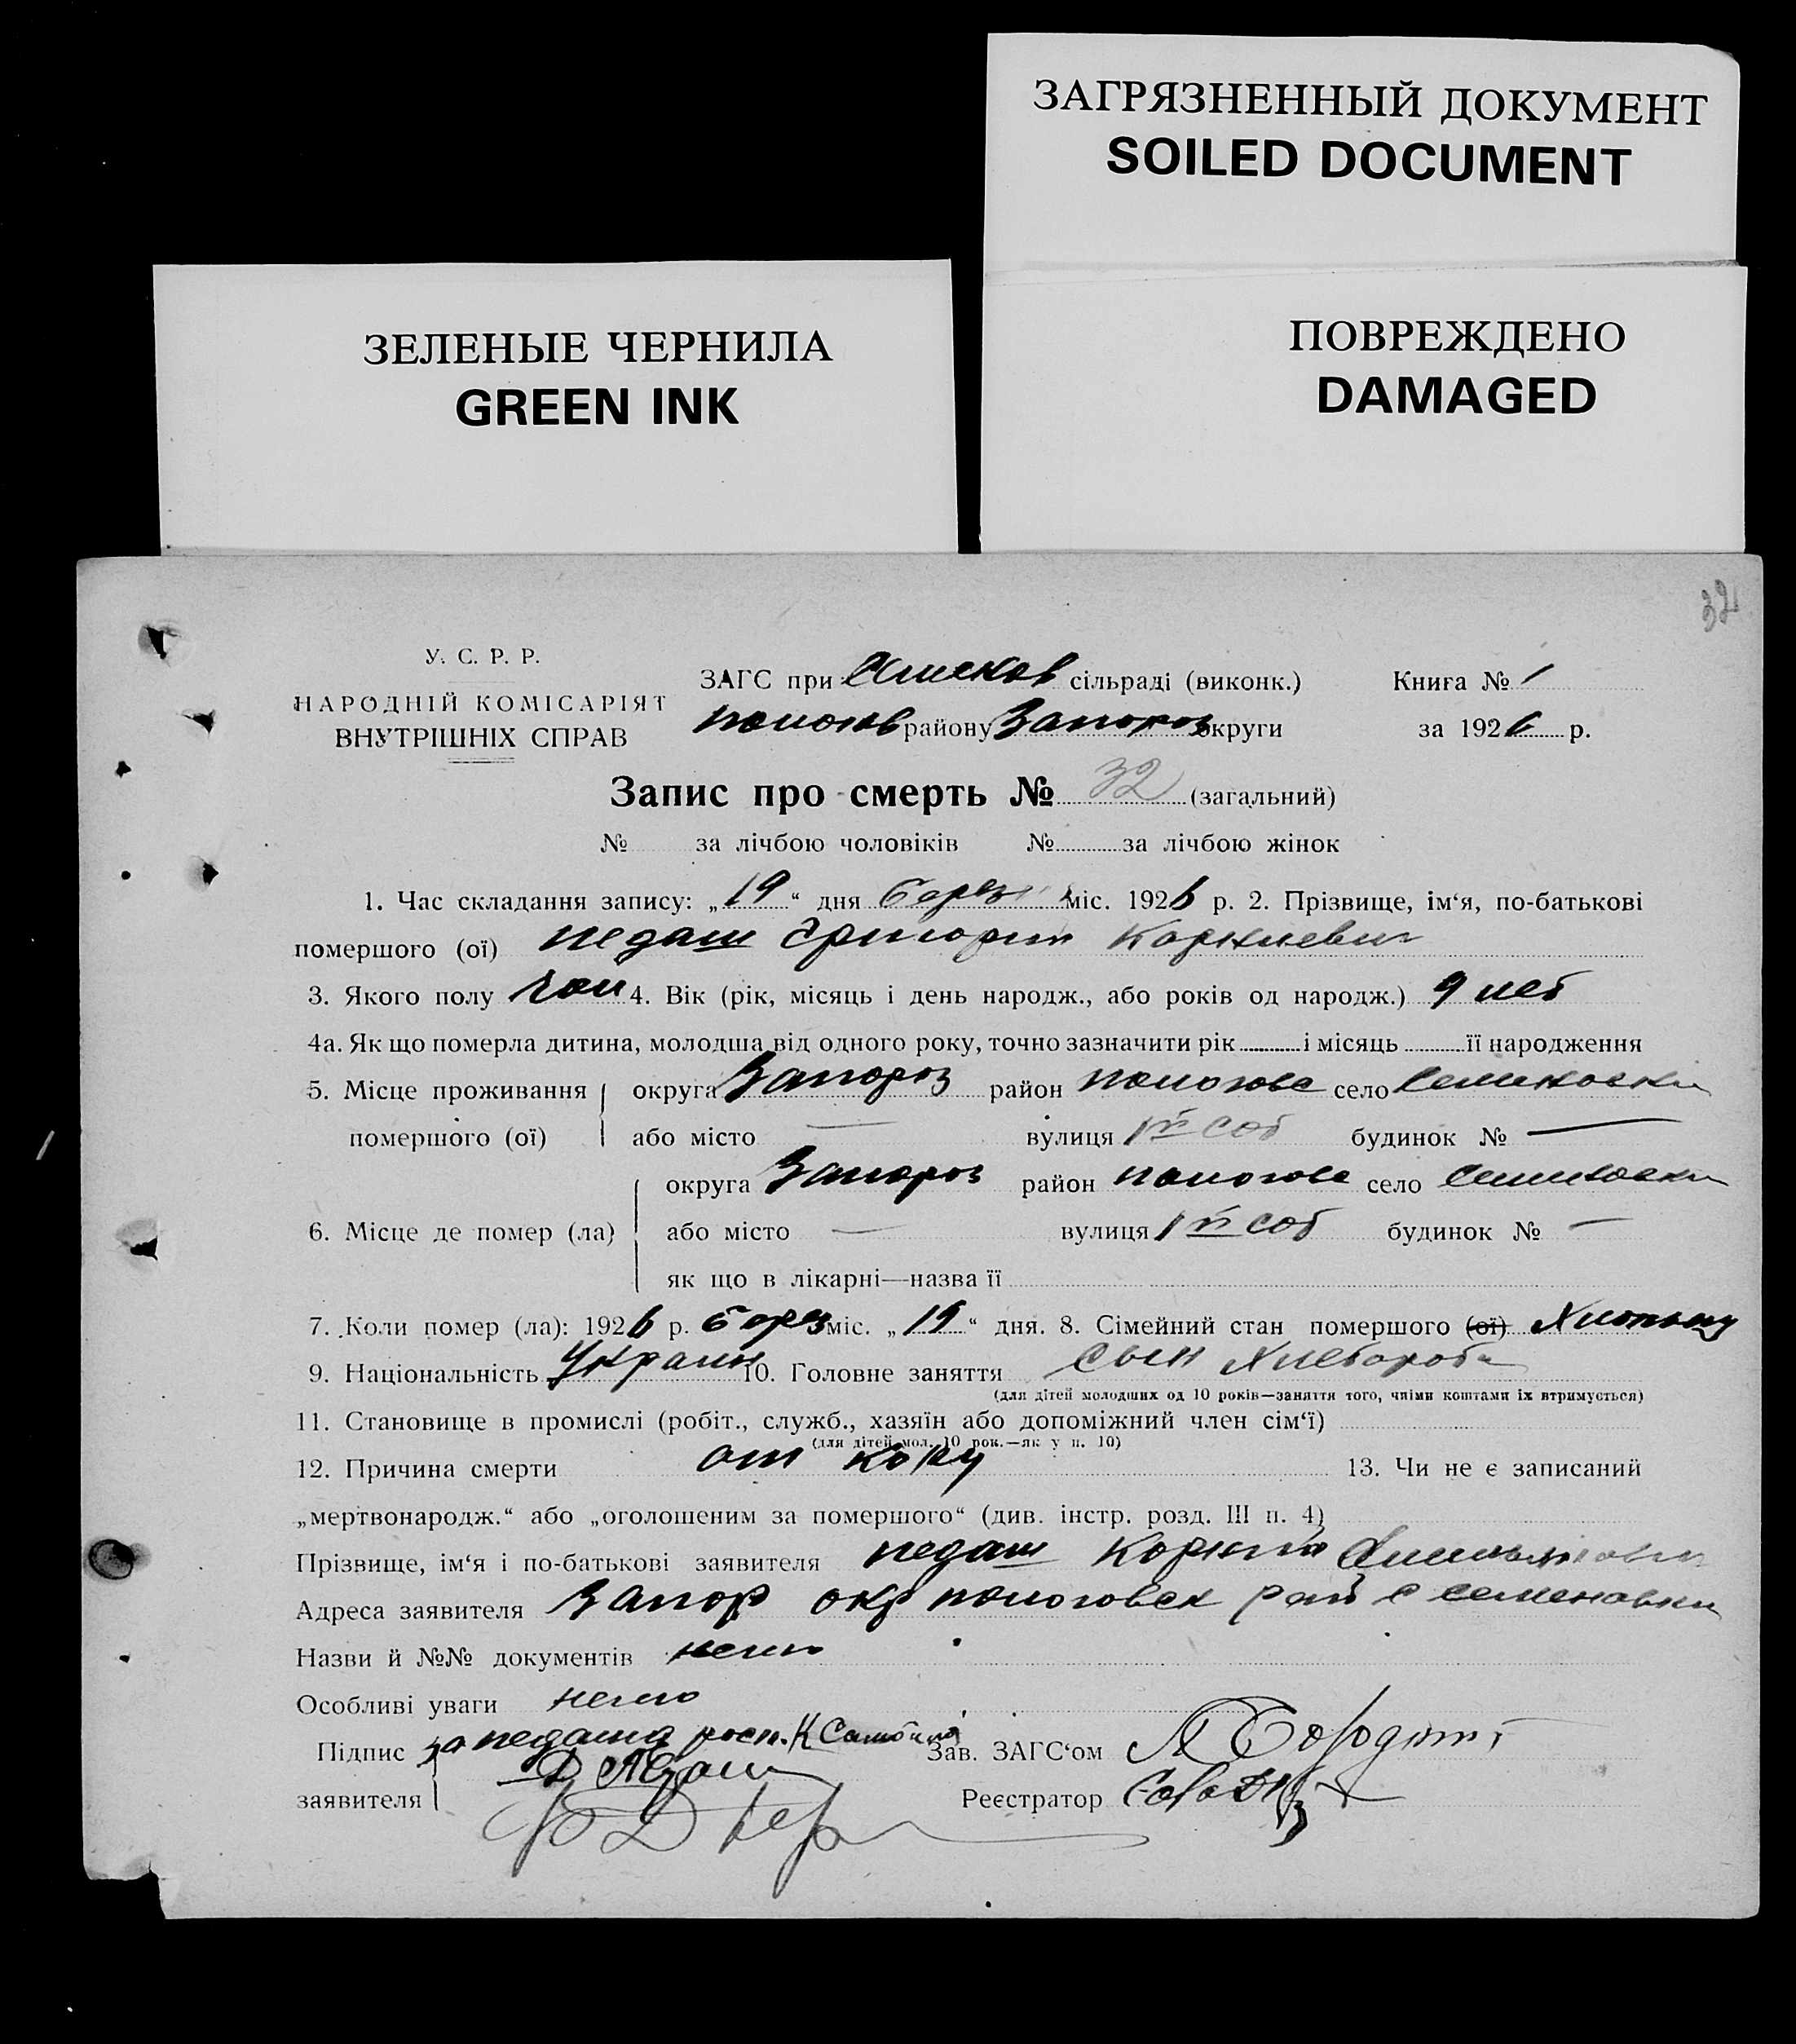 ЗАГРЯЗНЕННЫЙ ДОКУМЕНТ
SOILED DOCUMENT
ЗЕЛЕНЫЕ ЧЕРНИЛА
GREEN INK
ПОВРЕЖДЕНО
DAMAGED
32
У. С. Р. Р.
НАРОДНІЙ КОМІСАРІЯТ
ВНУТРІШНІХ СПРАВ
ЗАГС при сільраді (виконк.)
району Запорож округи
Книга № 1
за 1926 р.
Запис про смерть № 32 (загальний)
№ за лічбою чоловіків № за лічбою жінок
1. Час складання запису: „19“ дня берез міс. 1926 р. 2. Прізвище, ім‘я, по-батькові
помершого (ої) Педаш Григорий Корниевич
3. Якого полу чол 4. Вік (рік, місяць і день народж., або років од народж.) 9 лет
4а. Як що померла дитина, молодша від одного року, точно зазначити рік і місяць її народження
5. Місце проживання помершого (ої) округа Запорож район пологов село Семеновки
або місто — вулиця 1й соб будинок № —
6. Місце де помер (ла) округа Запорож район пологов село Семеновки
або місто — вулиця 1й соб будинок № —
як що в лікарні—назва її
7. Коли помер (ла): 1926 р. берез міс. „19“ дня. 8. Сімейний стан помершого (ої)
9. Національність Украин 10. Головне заняття сын Хлебороба
(для дітей молодших од 10 років—заняття того, чиїми коштами їх втримується)
11. Становище в промислі (робіт., служб., хазяїн або допоміжний член сім‘ї)
(для дітей мол. 10 рок.—як у п. 10)
12. Причина смерти от кору 13. Чи не є записаний
„мертвонародж.“ або „оголошеним за помершого“ (див. інстр. розд. III п. 4)
Прізвище, ім‘я і по-батькові заявителя Педаш Корний
Адреса заявителя Запор окр пологовск рай с Семеновки
Назви й №№ документів нема
Особливі уваги нема
Підпис заявителя за педаша росп.
Зав. ЗАГС‘ом
Реєстратор